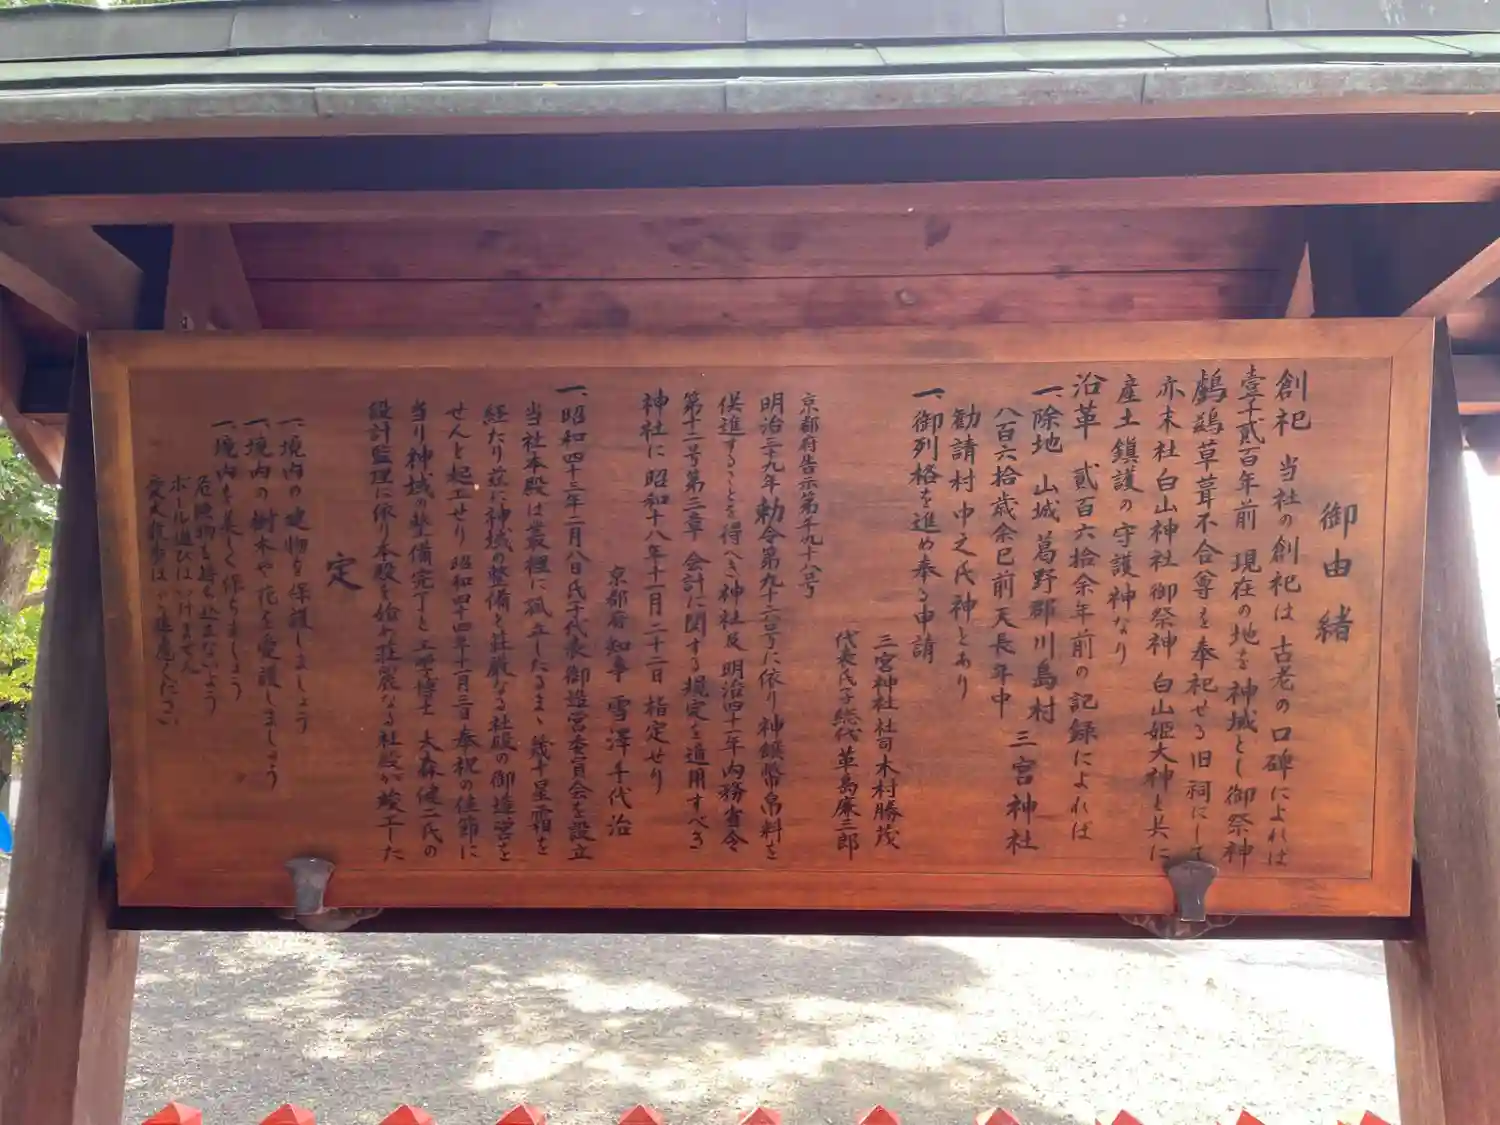 御由緒
創祀 当社の創祀は古老の口碑によれば
壹千貳百年前 現在の地を神域とし御祭神
鸕鷀草葺不合尊を奉祀せる旧祠にして
亦末社白山神社御祭神 白山姫大神と共に
産土鎮護の守護神なり
沿革 貳百六拾余年前の記録によれば
一、除地 山城葛野郡川島村 三宮神社
八百六拾歳余巳前天長年中
勧請村中之氏神とあり
一、御列格を進め奉る申請
三宮神社社司木村勝茂
代表氏子総代 革島廉三郎
京都府告示第千九十八号
明治三十九年勅令第九十六号に依り神饌幣帛料を
供進することを得べき神社及明治四十一年内務省令
第十二号第三章 会計に関する規定を適用すべき
神社に昭和十八年十一月二十二日指定せり
京都府知事 雪澤千代治
一、昭和四十三年二月八日氏子代表御造営委員会を設立
当社本殿は叢裡に孤立したるまゝ幾十星霜を
経たり茲に神域の整備と荘厳なる社殿の御造営を
せんと起工せり 昭和四十四年十一月三日奉祝の佳節に
当り神域の整備完了と工学博士 大森健二氏の
設計監理に依り本殿を始め荘麗なる社殿が竣工した
定
一、境内の建物を保護しましょう
一、境内の樹木や花を愛護しましょう
一、境内を美しく保ちましょう
危険物を持ち込まないよう
ボール遊びはいけません
愛犬散歩はご遠慮ください